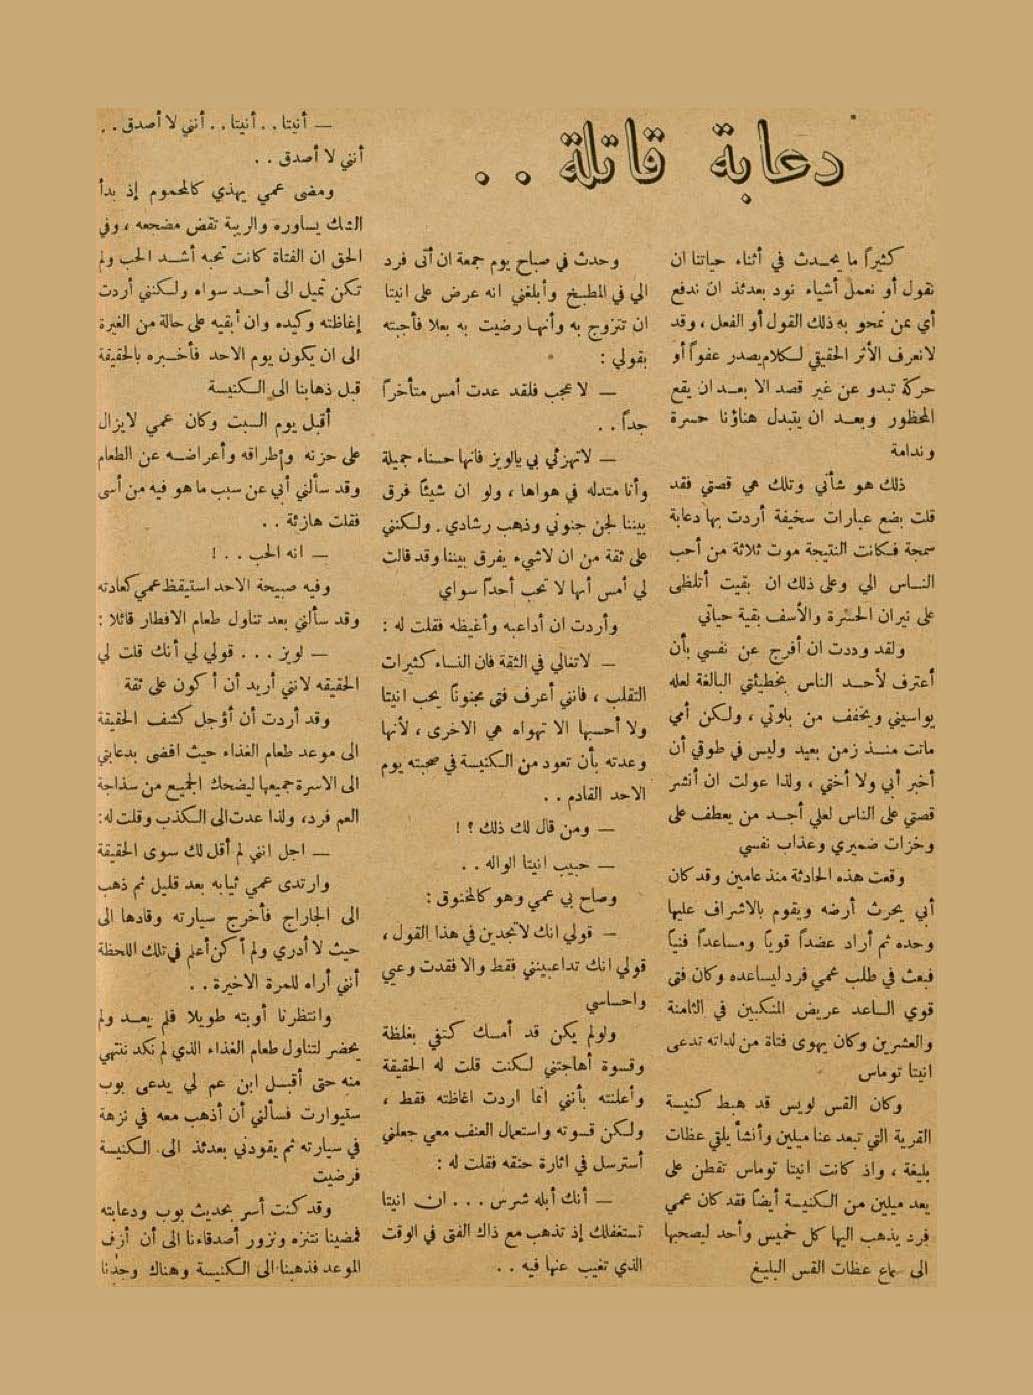 دعابة قاتلة . .
كثيراً ما يحدث في أثناء حياتنا ان
نقول أو نعمل أشياء نود بعدئذ ان ندفع
أي ثمن نمحو به ذلك القول أو الفعل ، وقد
لا نعرف الأثر الحقيقي لكلام يصدر عفواً أو
حركة تبدو عن غير قصد الا بعد ان يقع
المحظور وبعد ان يتبدل هناؤنا حسرة
وندامة
ذلك هو شأني وتلك هي قصتي فقد
قلت بضع عبارات سخيفة أردت بها دعابة
سمجة فكانت النتيجة موت ثلاثة من أحب
الناس الي وعلى ذلك ان بقيت أتلظى
على نيران الحسرة والأسف بقية حياتي
ولقد وددت ان أفرج عن نفسي بأن
أعترف لأحد الناس بخطيئتي البالغة لعله
يواسيني ويخفف من بلوتي ، ولكن أمي
ماتت منذ زمن بعيد وليس في طوقي أن
أخبر أبي ولا أختي ، ولذا عولت ان أنشر
قصتي على الناس لعلي أجد من يعطف على
وخزات ضميري وعذاب نفسي
وقعت هذه الحادثة منذ عامين وقد كان
أبي يحرث أرضه ويقوم بالاشراف عليها
وحده ثم أراد عضداً قوياً ومساعداً فنياً
فبعث في طلب عمي فرد ليساعده وكان فتى
قوي الساعد عريض المنكبين في الثامنة
والعشرين وكان يهوى فتاة من لداته تدعى
انيتا توماس
وكان القس لويس قد هبط كنيسة
القرية التي تبعد عنا ميلين وأنشأ يلقي عظات
بليغة ، واذ كانت انيتا توماس تقطن على
بعد ميلين من الكنيسة أيضاً فقد كان عمي
فرد يذهب اليها كل خميس وأحد ليصحبها
الى سماع عظات القس البليغ
وحدث في صباح يوم جمعة ان أتى فرد
الي في المطبخ وأبلغني انه عرض على انيتا
ان تتزوج به وأنها رضيت به بعلا فأجبته
بقولي :
— لا عجب فلقد عدت أمس متأخراً
جداً . .
— لا تهزئي بي يالويز فانها حسناء جميلة
وأنا متدله في هواها ، ولو ان شيئاً فرق
بيننا لجن جنوني وذهب رشادي . ولكنني
على ثقة من ان لا شيء يفرق بيننا وقد قالت
لي أمس أنها لا تحب أحداً سواي
وأردت ان أداعبه وأغيظه فقلت له :
— لا تغالي في الثقة فان النساء كثيرات
التقلب ، فانني أعرف فتى مجنوناً يحب انيتا
ولا أحسبها الا تهواه هي الاخرى ، لأنها
وعدته بأن تعود من الكنيسة في صحبته يوم
الاحد القادم . .
— ومن قال لك ذلك ؟ !
— حبيب انيتا الواله . .
وصاح بي عمي وهو كالمخنوق :
— قولي انك لا تجدين في هذا القول ،
قولي انك تداعبينني فقط والا فقدت وعيي
واحساسي
ولو لم يكن قد أمسك كتفي بغلظة
وقسوة أهاجتني لكنت قلت له الحقيقة
وأعلنته بأنني انما اردت اغاظته فقط ،
ولكن قسوته واستعمال العنف معي جعلني
أسترسل في اثارة حنقه فقلت له :
— أنك أبله شرس . . . ان انيتا
تستغفلك إذ تذهب مع ذاك الفتى في الوقت
الذي تغيب عنها فيه . .
— أنيتا . . أنيتا . . أنني لا أصدق . .
أنني لا أصدق . .
ومضى عمي يهذي كالمحموم إذ بدأ
الشك يساوره والريبة تقض مضجعه ، وفي
الحق ان الفتاة كانت تحبه أشد الحب ولم
تكن تميل الى أحد سواه ولكنني أردت
إغاظته وكيده وان أبقيه على حالة من الغيرة
الى ان يكون يوم الاحد فأخبره بالحقيقة
قبل ذهابنا الى الكنيسة
أقبل يوم السبت وكان عمي لايزال
على حزنه وإطراقه وأعراضه عن الطعام
وقد سألني أبي عن سبب ما هو فيه من أسى
فقلت هازئة . .
— انه الحب . . !
وفيه صبيحة الاحد استيقظ عمي كعادته
وقد سألني بعد تناول طعام الافطار قائلا :
— لويز . . . قولي لي أنك قلت لي
الحقيقه لانني أريد أن أكون على ثقة
وقد أردت أن أؤجل كشف الحقيقة
الى موعد طعام الغذاء حيث افضى بدعابتي
الى الاسرة جميعها ليضحك الجميع من سذاجة
العم فرد، ولذا عدت الى الكذب وقلت له:
— اجل انني لم أقل لك سوى الحقيقة
وارتدى عمي ثيابه بعد قليل ثم ذهب
الى الجاراج فأخرج سيارته وقادها الى
حيث لا أدري ولم أكن أعلم في تلك اللحظة
أنني أراه للمرة الاخيرة . .
وانتظرنا أوبته طويلا فلم يعد ولم
يحضر لتناول طعام الغذاء الذي لم نكد ننتهي
منه حتى أقبل ابن عم لي يدعى بوب
ستيوارت فسألني أن أذهب معه في نزهة
في سيارته ثم يقودني بعدئذ الى الكنيسة
فرضيت
وقد كنت أسر بحديث بوب ودعابته
فمضينا نتنزه ونزور أصدقاءنا الى أن أزف
الموعد فذهبنا الى الكنيسة وهناك وجدنا